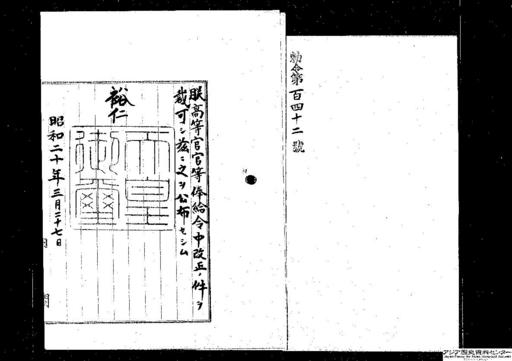 勅令第百四十二號
朕高等官官等俸給令中改正ノ件ヲ
裁可シ茲ニ之ヲ公布セシム
裕仁
天皇御璽
昭和二十年三月二十七日
内閣
アジア歴史資料センター